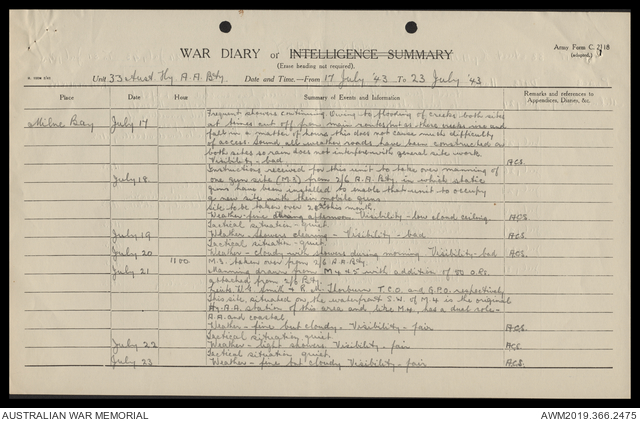 WAR DIARY of INTELLIGENCE SUMMARY
(Erase heading not required).
Army Form C. 2118
Unit 33 Aust. Hy. A.A. Bty. Date and Time—From 17 July '43 To 23 July '43
Place Date Hour Summary of Events and Information Remarks and references to Appendices, Diaries, &c.
Milne Bay July 17 Frequent showers continuing. Owing to flooding of creeks both sites
at times cut off from main routes, but as these creeks rise and
fall in a matter of hours this does not cause much difficulty
of access. Sound all-weather roads have been constructed on
both sites so rain does not interfere with general site work.
Visibility - bad. ACS.
July 18 Instructions received for this unit to take over manning of
one gun site (M.3) from 2/6 A.A. Bty, in which static
guns have been installed to enable that unit to occupy
a new site with their mobile guns.
Site to be taken over 20th this month.
Weather - fine during afternoon. Visibility - low cloud ceiling. ACS.
Tactical situation - quiet.
July 19 Weather - showers clearing - Visibility - bad ACS.
Tactical situation - quiet.
July 20 Weather - cloudy with showers during morning Visibility - bad ACS.
July 21 1100 M.3 taken over from 2/6 A.A. Bty.
Manning drawn from M 4 & 5 with addition of 30 O.Rs.
attached from 2/6 Bty.
Lieuts. Smith & Thorburn T.C.O. and G.P.O. respectively
This site, situated on the waterfront S.W. of M.4 is the original
Hy. A.A. station of this area and like M.4, has a dual role -
A.A. and coastal.
Weather - fine but cloudy. Visibility - fair ACS.
Tactical situation quiet
July 22 Weather - light showers Visibility - fair ACS.
Tactical situation quiet.
July 23 Weather - fine but cloudy Visibility - fair ACS.
AUSTRALIAN WAR MEMORIAL AWM2019.366.2475